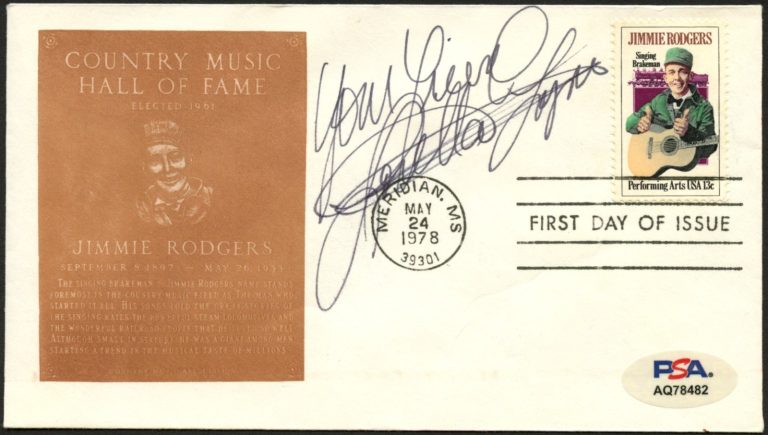 COUNTRY MUSIC
HALL OF FAME
ELECTED 1961
JIMMIE RODGERS
SEPTEMBER 8, 1897 — MAY 26, 1933
THE SINGING BRAKEMAN JIMMIE RODGERS NAME STANDS
FOREMOST IN THE COUNTRY MUSIC FIELD AS THE MAN WHO
STARTED IT ALL. HIS SONGS TOLD THE GREAT STORIES OF
THE SINGING RAILS, THE POWERFUL STEAM LOCOMOTIVES AND
THE WONDERFUL RAILROAD PEOPLE THAT HE LOVED SO WELL
ALTHOUGH SMALL IN STATURE, HE WAS A GIANT AMONG MEN
STARTING A TREND IN THE MUSICAL TASTE OF MILLIONS
Your Friend
Loretta Lynn
JIMMIE RODGERS
Singing
Brakeman
Performing Arts USA 13c
MERIDIAN, MS
MAY
24
1978
39301
FIRST DAY OF ISSUE
PSA.
AQ78482